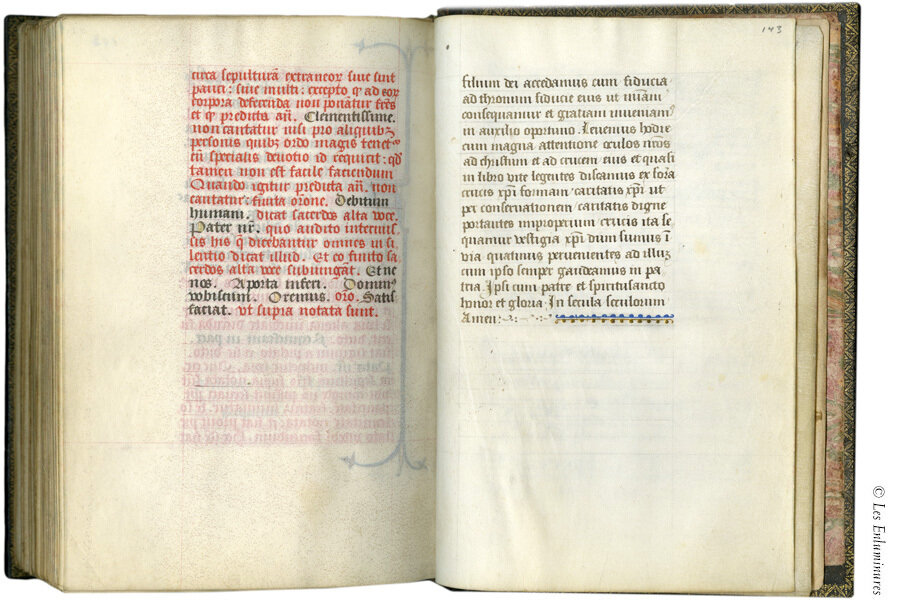 circa sepulturā extraneoꝝ siue sint
pauci: siue multi: excepto ꝙ ad eoꝝ
corpora deferenda non ponātur frēs
et ꝙ predicta añ. Clementissime.
non cantatur nisi pro aliquibꝫ
personis quibꝫ ordo magis tenetᷣ
cū specialis deuotio id requirit: qđ
tamen non est facile faciendum
Quando igitur predicta añ. non
cantatur: finita orōne. Debitum
humani. dicat sacerdos alta voce.
Pater nr̄. quo audito interius
sis his q̄ dicebantur omnes in si
lentio dicat illud. Et eo finito sa
cerdos alta voce subiungāt. Et ne
nos. A porta inferi. Dominꝰ
vobiscum. Oremus. oro. Satis
faciat. vt supra notata sunt.
143
filium dei accedamus cum fiducia
ad thronum fiducie eius ut mīam
consequamur et gratiam inueniamꝰ
in auxilio oportuno. Leuemus hodie
cum magna attentione oculos nr̄os
ad christum et ad crucem eius et quasi
in libro vite legentes discamus ex sacra
crucis xp̄i formam caritatis xp̄i ut
per conseruationem caritatis digne
portantes improperium crucis ita se
quamur vestigia xp̄i dum sumus ī
via quatinus peruenientes ad illuꝫ
cum ipso semper gaudeamus in pa
tria. Ipsi cum patre et spiritusancto
honor et gloria. In secula seculorum
Amen:
© Les Enluminures